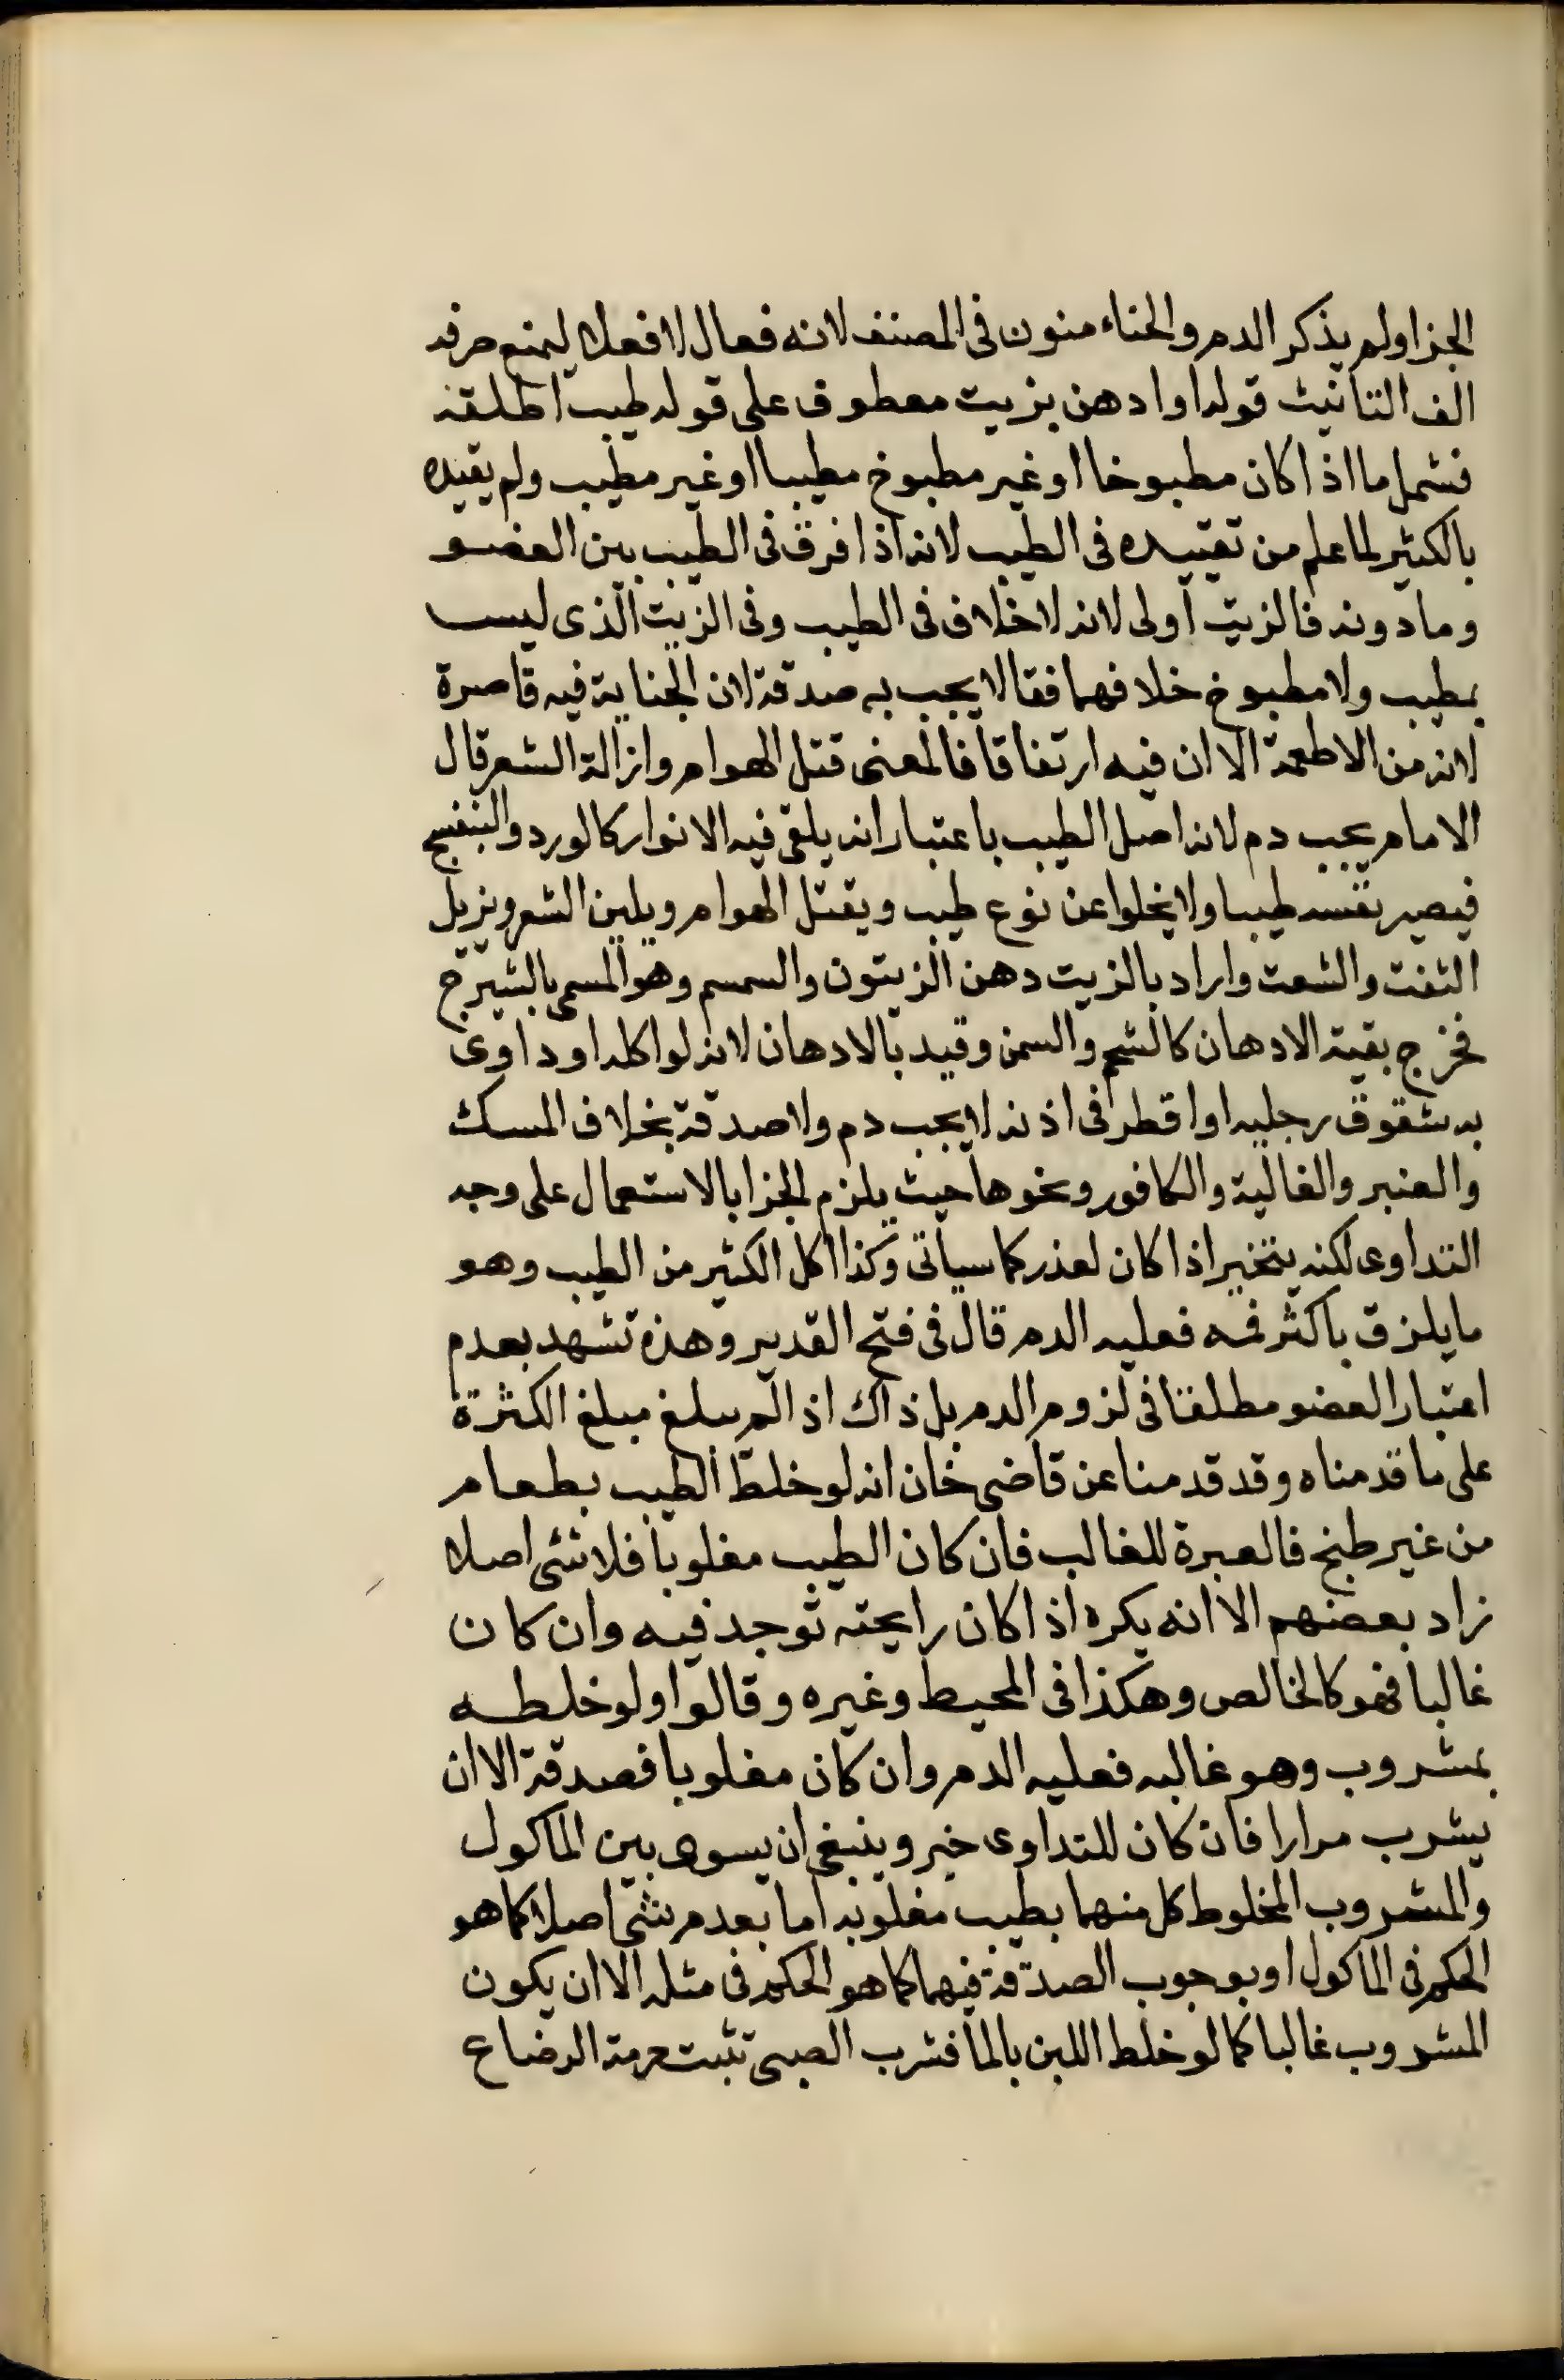 الجزا ولم يذكر الدم والحناء منون فى المصنف لانه فعال لا فعلا ليمنع صرفه
الف التانيث قوله او ادهن بزيت معطوف على قوله طيب اطلقه
فشمل ما اذا كان مطبوخا او غير مطبوخ مطيبا او غير مطيب ولم يقيده
بالكثير لما علم من تقييده فى الطيب لانه اذا فرق فى الطيب بين العضو
وما دونه فالزيت اولى لانه لا خلاف فى الطيب وفى الزيت الذى ليس
بمطيب ولا مطبوخ خلافهما فقالا يجب به صدقة لان الجناية فيه قاصرة
لانه من الاطعمة الا ان فيه ارتفاقا فالمعنى قتل الهوام وازالة الشعر قال
الامام يجب دم لانه اصل الطيب باعتبار انه يلقى فيه الانوار كالورد والبنفسج
فيصير نفسه طيبا ولا يخلوا عن نوع طيب ويقتل الهوام ويلين الشعر ويزيل
التفث والشعث واراد بالزيت دهن الزيتون والسمسم وهو المسمى بالشيرج
فخرج بقية الادهان كالشحم والسمن وقيد بالادهان لانه لو اكله او داوى
به شقوق رجليه او اقطر فى اذنه لا يجب دم ولا صدقة بخلاف المسك
والعنبر والغالية والكافور ونحوها حيث يلزم الجزا بالاستعمال على وجه
التداوى لكنه يتخير اذا كان لعذر كما سياتى وكذا اكل الكثير من الطيب وهو
ما يلزق باكثر فمه فعليه الدم قال فى فتح القدير وهذه تشهد بعدم
اعتبار العضو مطلقا فى لزوم الدم بل ذاك اذا لم يبلغ مبلغ الكثرة
على ما قدمناه وقد قدمنا عن قاضى خان انه لو خلط الطيب بطعام
من غير طبخ فالعبرة للغالب فان كان الطيب مغلوبا فلا شئى اصلا
زاد بعضهم الا انه يكره اذا كان رايحته توجد فيه وان كان
غالبا فهو كالخالص وهكذا فى المحيط وغيره وقالوا ولو خلطه
بمشروب وهو غالبه فعليه الدم وان كان مغلوبا فصدقة الا ان
يشرب مرارا فان كان للتداوى خير وينبغى ان يسوى بين الماكول
والمشروب المخلوط كل منهما بطيب مغلوبه اما بعدم شئى اصلا كما هو
الحكم فى الماكول او بوجوب الصدقة فيهما كما هو الحكم فى مثله الا ان يكون
المشروب غالبا كما لو خلط اللبن بالما فشرب الصبى تثبت حرمة الرضاع